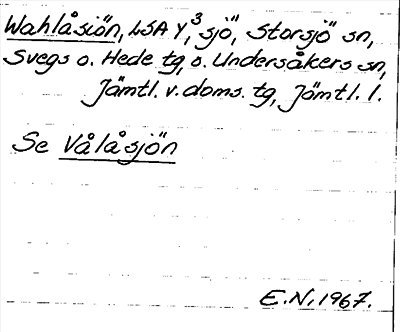 Wahlåsiön, LSA Y,³ sjö, Storsjö sn,
Svegs o. Hede tg, o. Undersåkers sn,
Jämtl. v. doms. tg, Jämtl. l.
Se Vålåsjön
E.N. 1967.